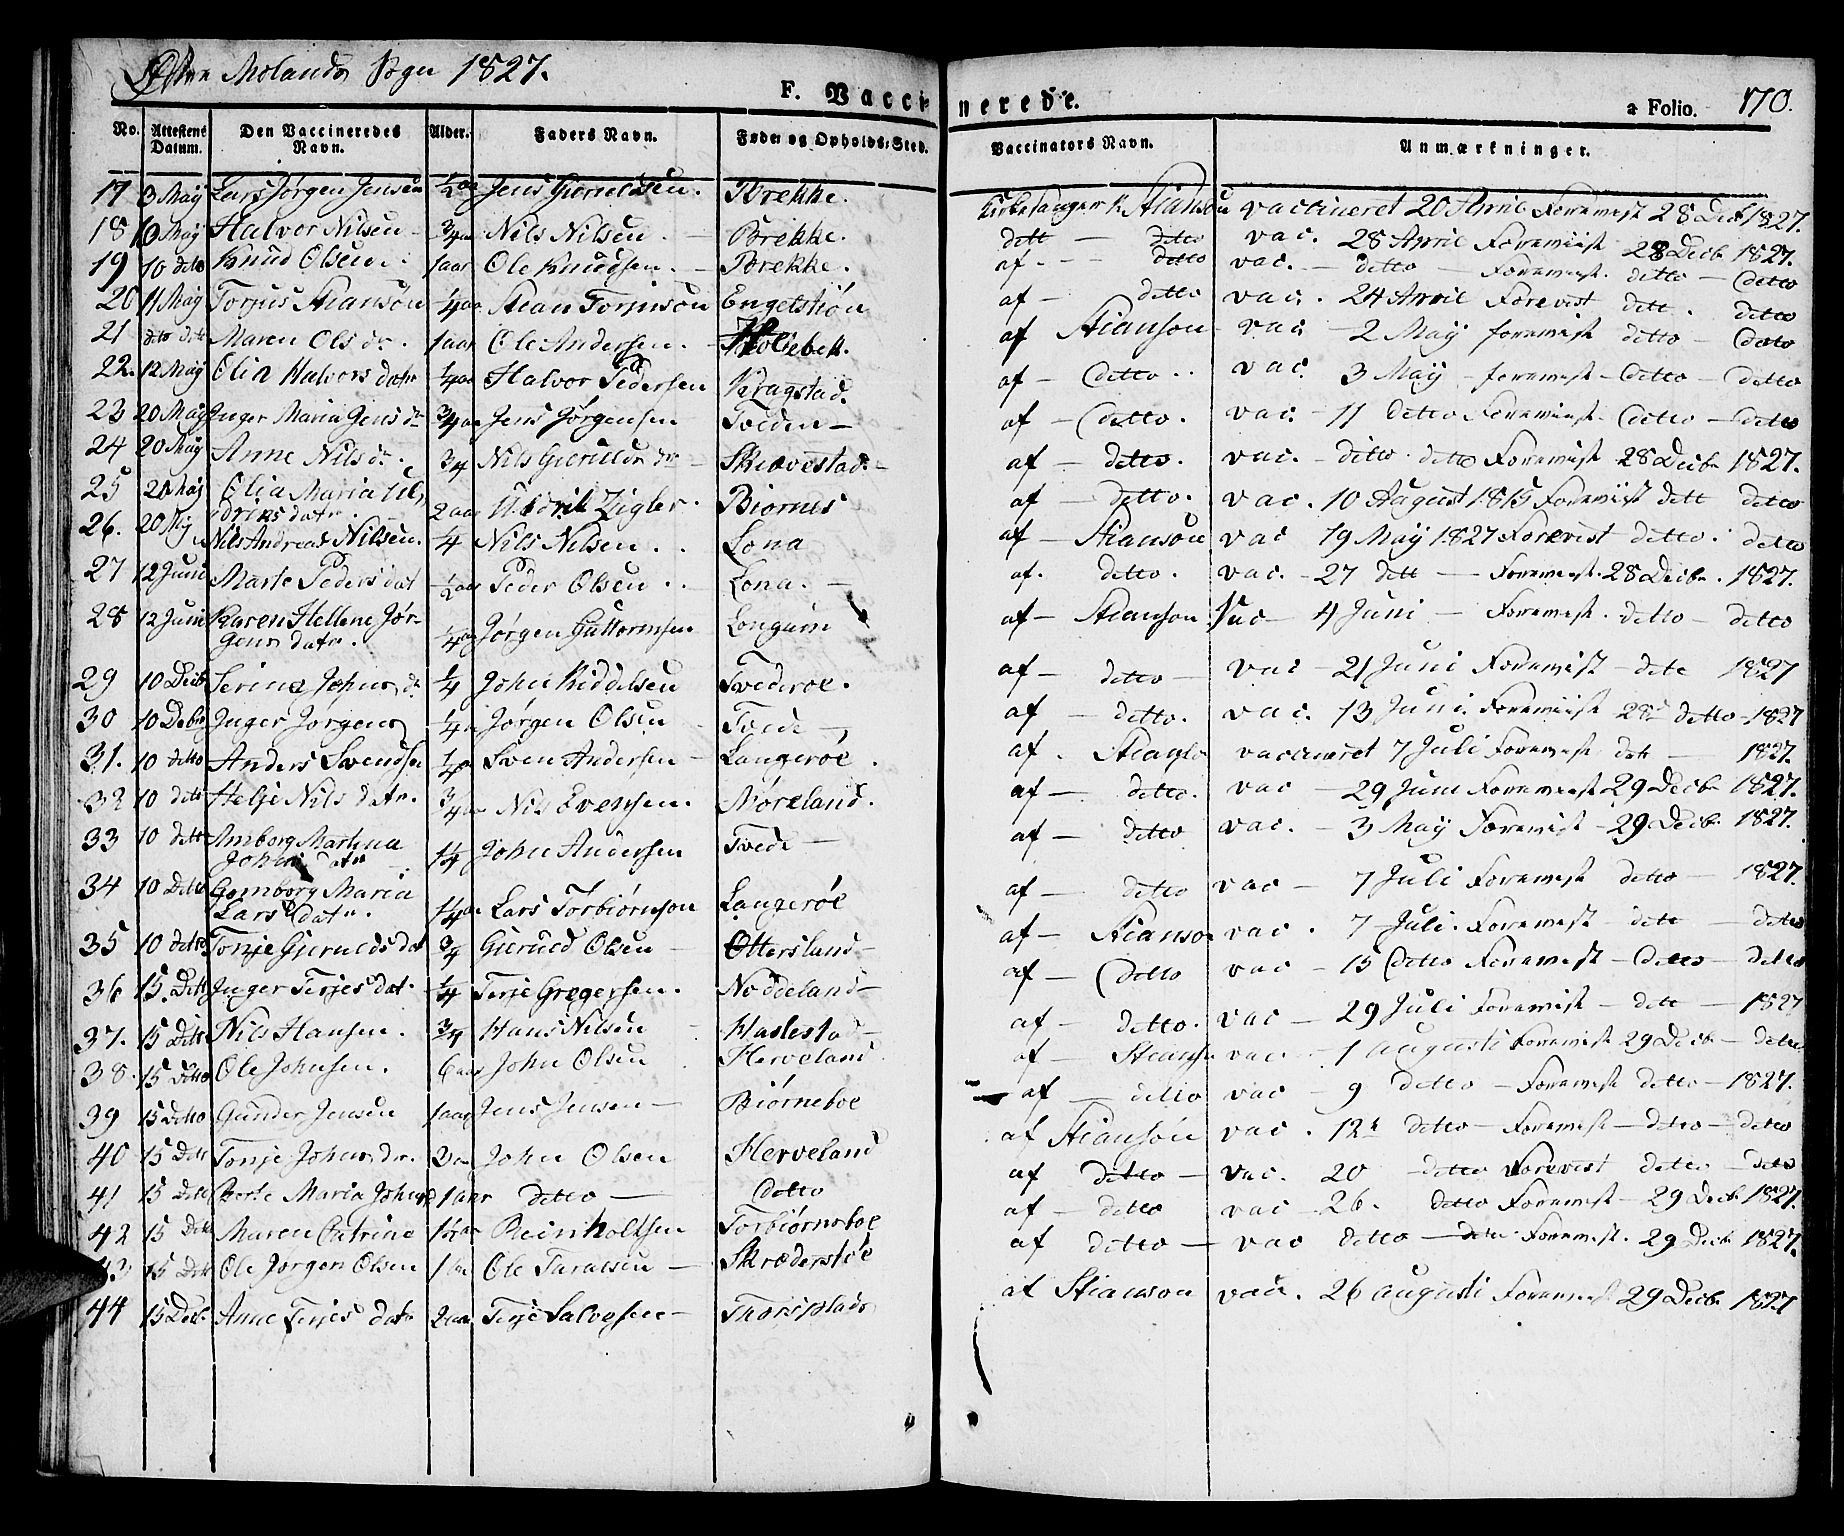 Østre Molands Sogn 1827.
F. Vaccinerede.
a Folio. 170.
No. Attestens Datum. Den Vaccineredes Navn. Alder. Faders Navn. Føde og Opholds-Sted. Vaccinators Navn. Anmærkninger.
17 3 May Lars Jørgen Jensen ½ aar Jens Gjeruldsen. Brekke. Kirkesanger K. Stianson vaccineret 20 April Forevist 28 Decb 1827.
18 10 May Halvor Nilsen ¾ aar Nils Nilsen — Brekke. dett — ditto vac. 28 April Foreviist 28 Decbr 1827.
19 10 dito Knud Olsen. 1 aar Ole Knudsen. — Brekke. af — ditto vac. — ditto — Forevist. ditto — ditto
20 11 May Torjus Stiansøn ¼ aar Stian Torjusøn Engelstiøn af — ditto vac. 24 April Forevist ditt. ditto
21 dito dito Maren Ols dr. 1 aar Ole Andersen. — Holiebek. af Stianson vac — 2 May forevist ditto — ditto
22. 12 May Olia Halvors datr ¼ aar Halvor Pedersen Kragstad. af — ditto vac. 3 May — forevist — ditto — ditto
23 20 May Inger Maria Jens dr ¾ aar Jens Jørgensen Tveden — af — ditto. vac. — 11 ditto Forevist ditto — ditto
24 20 May Anne Nils dr. ¾ Nils Gieruldsen — Skiævestad — af — ditto. vac. — ditto. ditto Forevist 28 Decbr 1827.
25 20 May Olia Maria Ul-
driks datr. 2 aar Uldrik Zigler. Biornes af — ditto. vac. 10 August 1815 Foreviist ditt ditto
26. 20 My Nils Andreas Nilsen. ¼ Nils Nilsen. Lona af — Stiansøn vac 19 May 1827 Forevist ditto. ditto
27 12 Juni Marte Peders dat ½ aar Peder Olsen. Lona. — af. ditto. vac. — 27 ditt — Forevist. 28 Decbr. 1827.
28 12 Juni Karen Hellene Jør-
gens datr. ¼ aar Jørgen Guttormsen Longum af — Stianson Vac — 4 Juni — Forevist. ditto — ditto
29 10 Decb Serina Johns dr ¼ John Kiddelsen Tvederøe. af — ditto — vac — 21 Juni Forevist — ditt 1827
30 10 Debr Inger Jørgens ¼ aar Jørgen Olsen Tvede — af — ditto. vac. — 13 Juni. Foreviist 28d ditto — 1827
31. 10 ditto Anders Svendsen ½ aar Sven Andersen — Langerøe. af. Stianso vaccineret 7 Juli Forevist ditt — 1827.
32 10 ditto Helje Nils datr. ¾ aar Nils Evensen. Møreland. af — ditto. vac — 29 Juni Forevist 29 Decbr 1827.
33 10 ditto Amborg Martina
Johns datr 1¼ John Andersen Tvede — af — ditto vac. — 3 May Forevist — 29 Decb. 1827.
34 10 Ditto Gomborg Maria
Lars datr. 1¼ aar Lars Torbiørnson Langerøe af — ditto vac — 7 Juli Forevist ditto — 1827.
35 10 ditto Tonje Gjerulds dat ¾ Gieruld Olsen — Ottersland — af — Stianso vac. 7 Juli. Forevist — ditt — ditto
36 15. Ditt Inger Terjes dat. ¼ Terje Gregersen. Nøddeland — af — ditto vac — 15 ditto Forevist — ditto — ditto
37. 15 Ditto Nils Hansen. ¾ Hans Nilsen — Haslestad — af — ditto. vac — 29 Juli Forevist — ditt — 1827
38. 15 Ditto Ole Johnsen. 6 aar John Olsen Herveland af — Stianso vac. — 1 augusti Forevist 29 Decb — ditto
39 15 Ditto Gunder Jensen 1 aar Jens Jensen — Biørneboe af — ditto vac — 9 ditto — Forevist ditto — 1827.
40 15 Ditt Tonje Johns dr. 3 aar John Olsen Herveland af Stiansøn vac. 12te ditto — Forevist — ditto — ditto
41 15 Ditt Berte Maria Johns d 1 aar ditto — Ditto af ditto — vac. 20 ditto Forevist ditto — ditto
42 15 Ditt Maren Catrine 1½ aar Reinholtsen Torbiørnsboe af — ditto vac — 26. ditto Forevist — 29 Decb. 1827.
43 15 Ditt Ole Jørgen Olsen 1 aar Ole Taralsen — Skræderstøe af ditto — vac ditto — ditto Forevist. 29 Decb 1827.
44 15 Decb. Anne Terjes datr 2 aar Terje Salvesen — Thorsplads af Stianson vac. 26 augusti Forevist 29 Decbr 1827